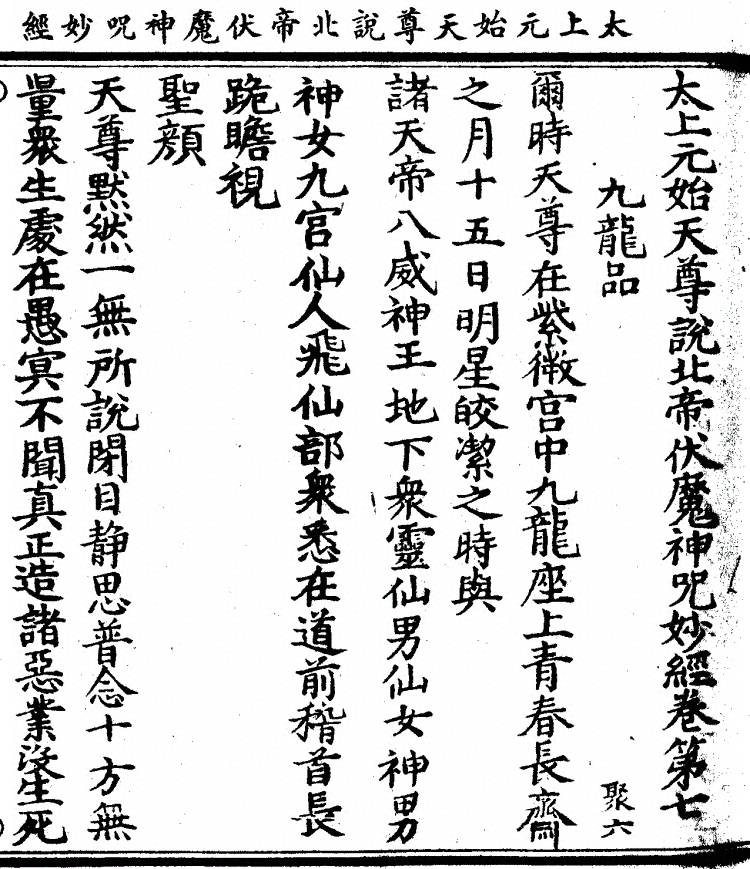 太上元始天尊說北帝伏魔神呪妙經
太上元始天尊說北帝伏魔神呪妙經卷第七
九龍品
聚六
爾時天尊在紫微宮中九龍座上青春長齋
之月十五日明星皎潔之時與
諸天帝八威神王地下衆靈仙男仙女神男
神女九宮仙人飛仙部衆悉在道前稽首長
跪瞻視
聖顏
天尊默然一無所說閉目静思普念十方無
量衆生處在愚冥不聞真正造諸惡業沒生死